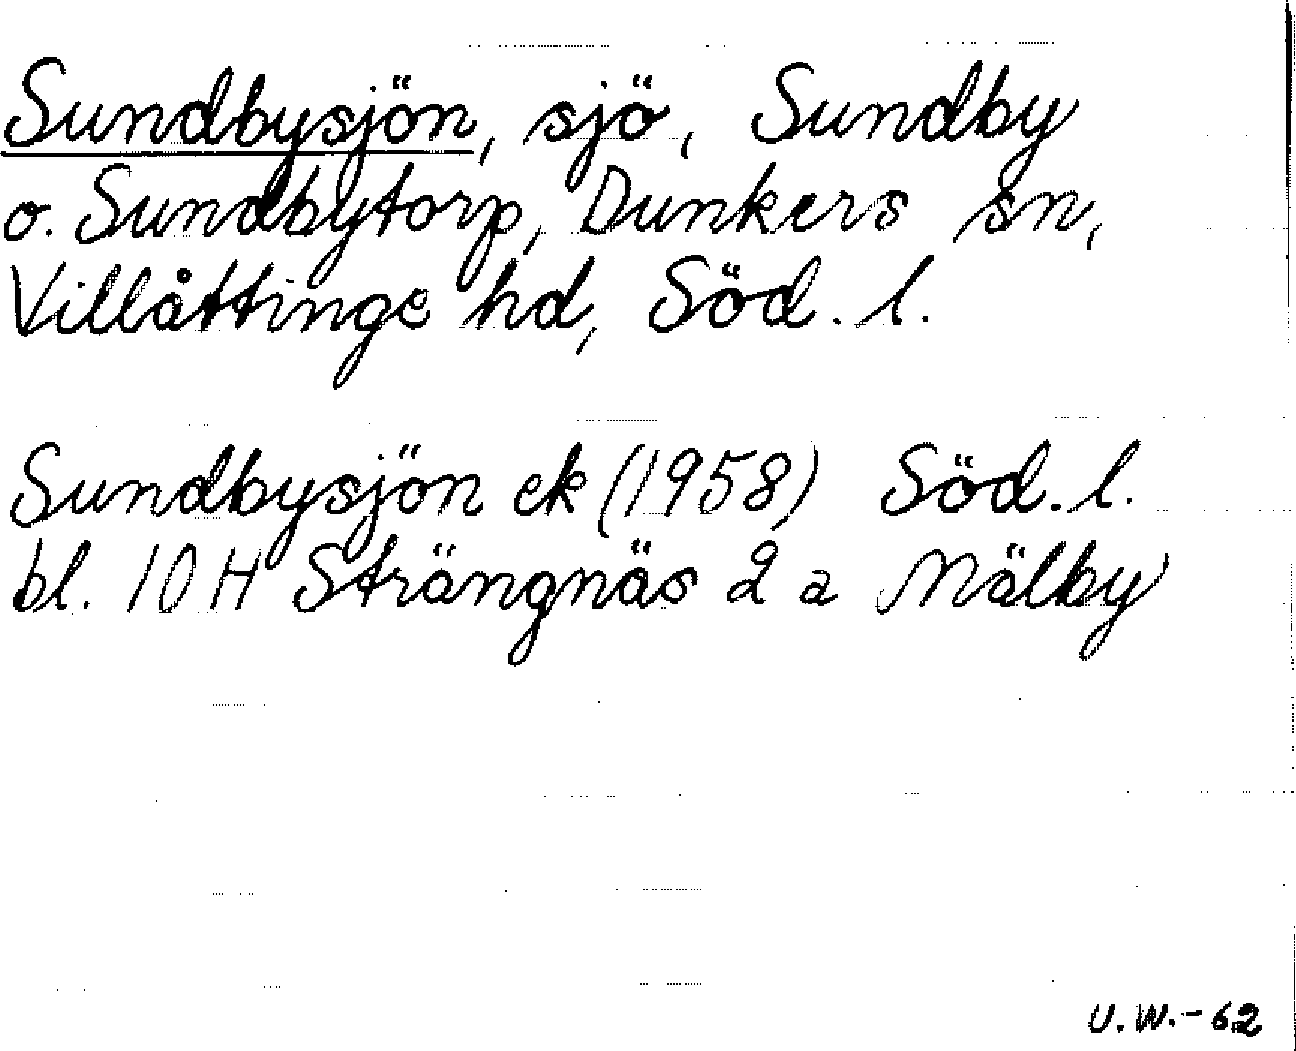 Sundbysjön, sjö, Sundby
o. Sundbytorp, Dunkers sn,
Villåttinge hd, Söd. l.
Sundbysjön ek (1958) Söd. l.
bl. 10 H Strängnäs 2 a Mälby
U. W. - 62